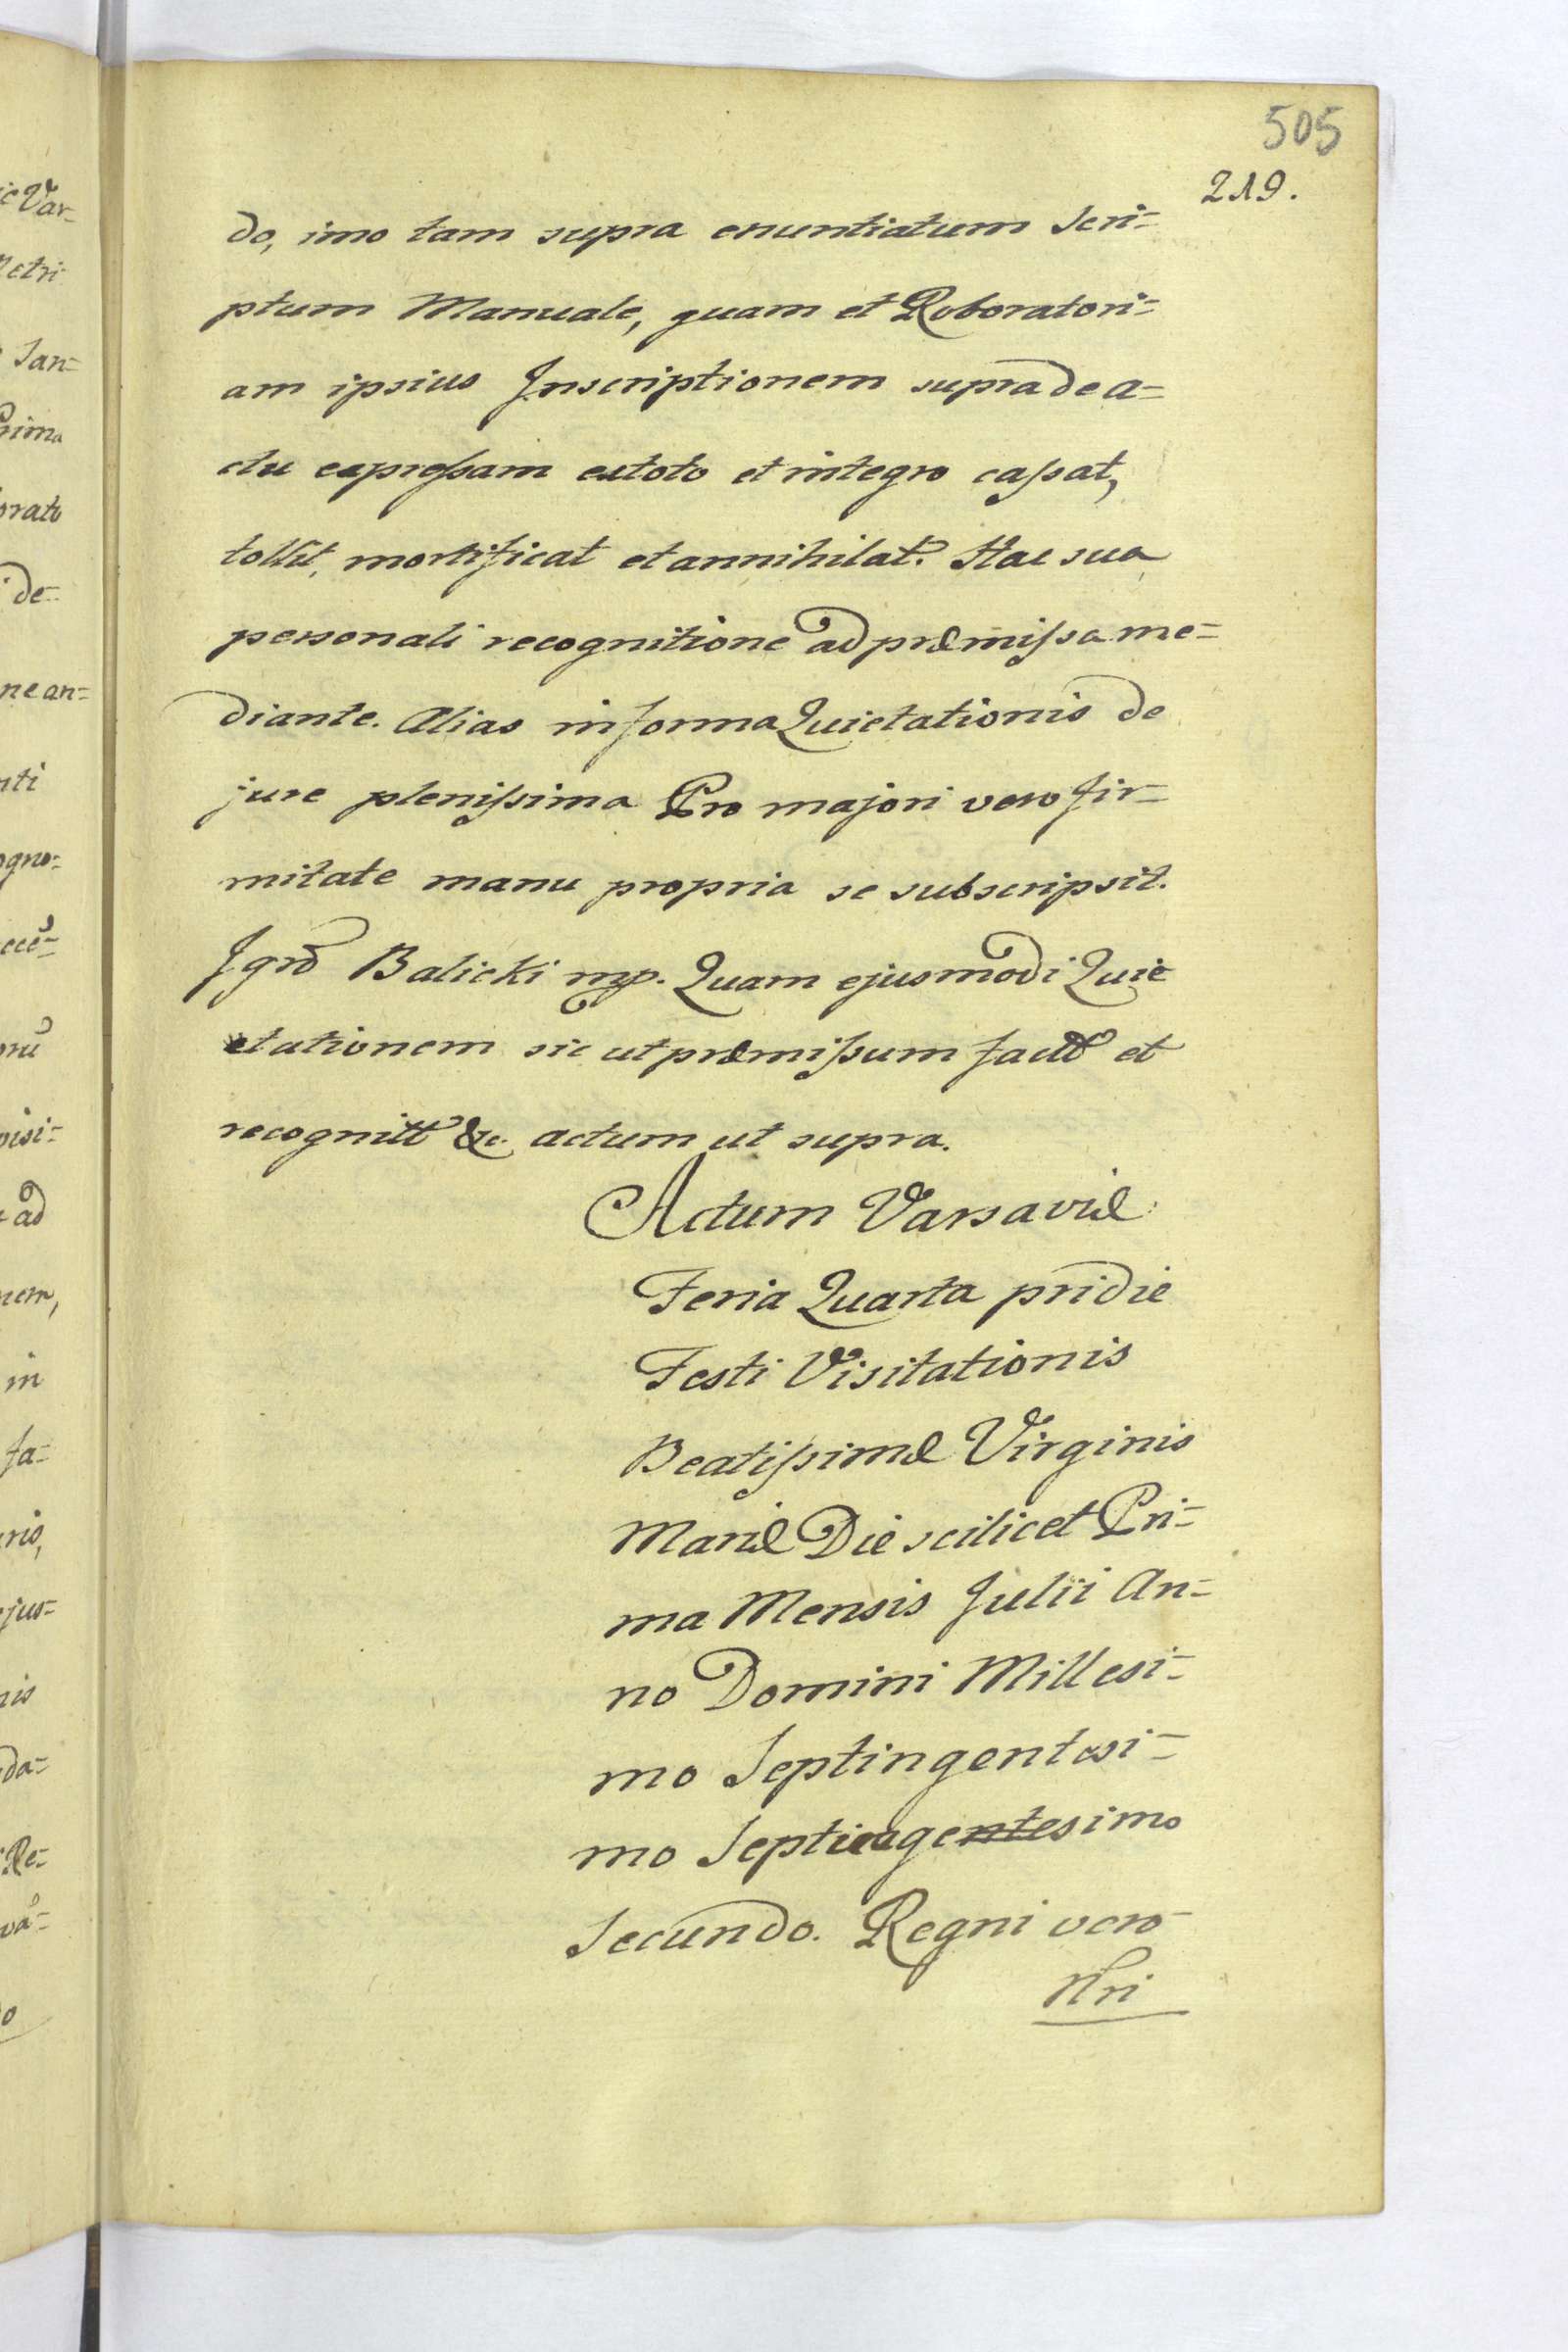 505
219.
do, imo tam supra enuntiatum Scri=
ptum Manuale, quam et Roboratori=
am ipsius Inscriptionem supra de a=
ctu expressam ex toto et integro cassat,
tollit, mortificat et annihilat. Hac sua
personali recognitione ad præmissa me=
diante. Alias in forma Quietationis de
jure plenissima Pro majori vero fir=
mitate manu propria se subscripsit.
Balicki mp. Quam ejusmodi Quie
tationem sic ut præmissum et
&c. actum ut supra.
Actum Varsaviæ
Feria Quarta pridie
Festi Visitationis
Beatissimæ Virginis
Mariæ Die scilicet Pri=
ma Mensis Julii An=
no Domini Millesi=
mo Septingentesi=
mo Septuagentesimo
Secundo. Regni vero
Nri
ic Var=
Metri
San=
Prima
orato
de=
ne an=
nti
ogno=
visi=
ad
nem,
in
fa=
ris,
ejus=
nis
da=
Re=
o